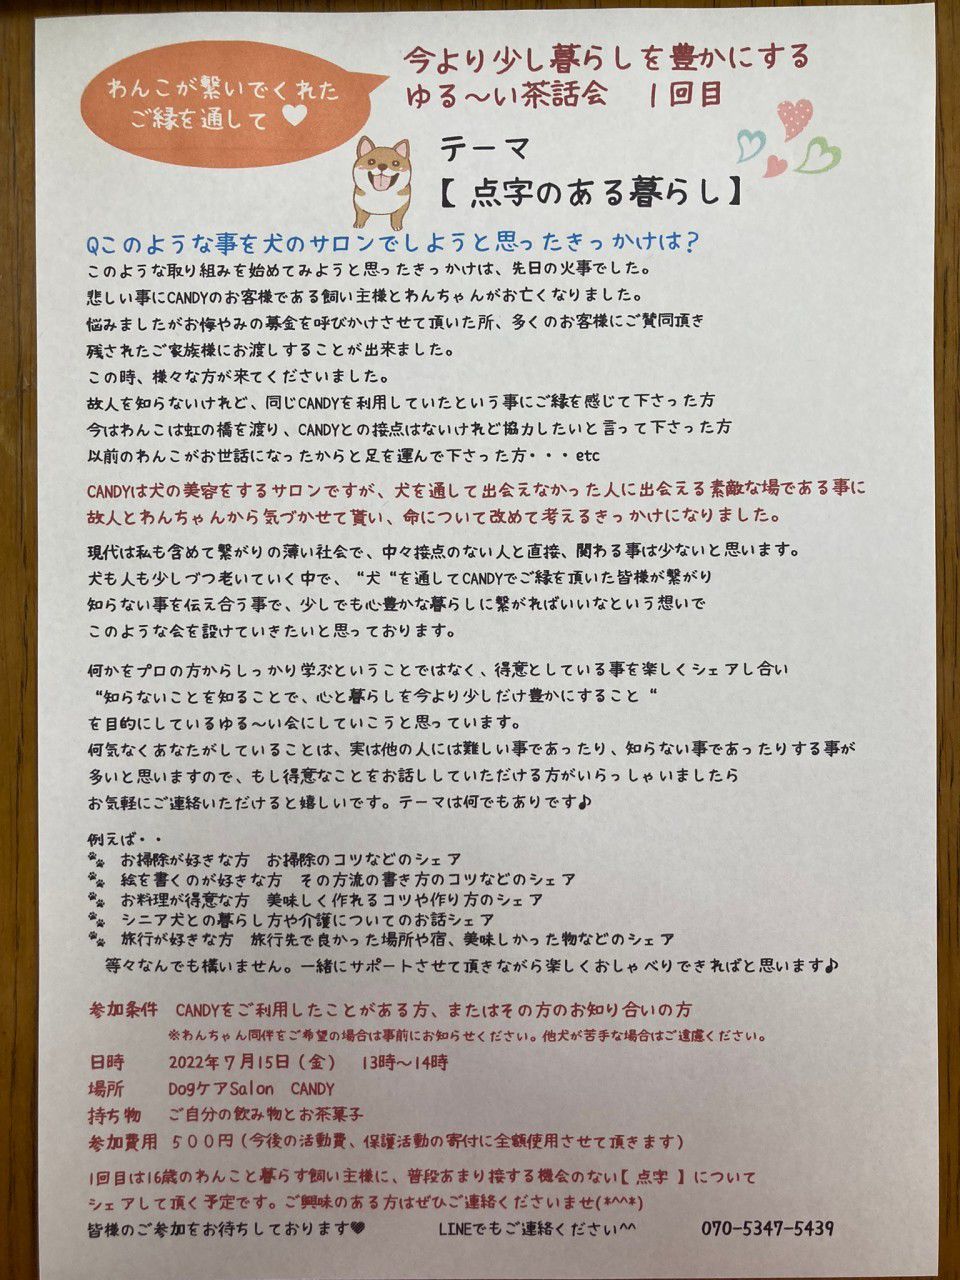 わんこが繋いでくれた
ご縁を通して
今より少し暮らしを豊かにする
ゆる～い茶話会　1回目
テーマ
【 点字のある暮らし】
Qこのような事を犬のサロンでしようと思ったきっかけは？
このような取り組みを始めてみようと思ったきっかけは、先日の火事でした。
悲しい事にCANDYのお客様である飼い主様とわんちゃんがお亡くなりました。
悩みましたがお悔やみの募金を呼びかけさせて頂いた所、多くのお客様にご賛同頂き
残されたご家族様にお渡しすることが出来ました。
この時、様々な方が来てくださいました。
故人を知らないけれど、同じCANDYを利用していたという事にご縁を感じて下さった方
今はわんこは虹の橋を渡り、CANDYとの接点はないけれど協力したいと言って下さった方
以前のわんこがお世話になったからと足を運んで下さった方・・・etc
CANDYは犬の美容をするサロンですが、犬を通して出会えなかった人に出会える素敵な場である事に
故人とわんちゃんから気づかせて貰い、命について改めて考えるきっかけになりました。
現代は私も含めて繋がりの薄い社会で、中々接点のない人と直接、関わる事は少ないと思います。
犬も人も少しづつ老いていく中で、“犬“を通してCANDYでご縁を頂いた皆様が繋がり
知らない事を伝え合う事で、少しでも心豊かな暮らしに繋がればいいなという想いで
このような会を設けていきたいと思っております。
何かをプロの方からしっかり学ぶということではなく、得意としている事を楽しくシェアし合い
“知らないことを知ることで、心と暮らしを今より少しだけ豊かにすること“
を目的にしているゆる～い会にしていこうと思っています。
何気なくあなたがしていることは、実は他の人には難しい事であったり、知らない事であったりする事が
多いと思いますので、もし得意なことをお話ししていただける方がいらっしゃいましたら
お気軽にご連絡いただけると嬉しいです。テーマは何でもありです♪
例えば・・
お掃除が好きな方　お掃除のコツなどのシェア
絵を書くのが好きな方　その方流の書き方のコツなどのシェア
お料理が得意な方　美味しく作れるコツや作り方のシェア
シニア犬との暮らし方や介護についてのお話シェア
旅行が好きな方　旅行先で良かった場所や宿、美味しかった物などのシェア
等々なんでも構いません。一緒にサポートさせて頂きながら楽しくおしゃべりできればと思います♪
参加条件　CANDYをご利用したことがある方、またはその方のお知り合いの方
※わんちゃん同伴をご希望の場合は事前にお知らせください。他犬が苦手な場合はご遠慮ください。
日時　2022年7月15日（金）　13時～14時
場所　DogケアSalon　CANDY
持ち物　ご自分の飲み物とお茶菓子
参加費用　５００円（今後の活動費、保護活動の寄付に全額使用させて頂きます）
1回目は16歳のわんこと暮らす飼い主様に、普段あまり接する機会のない【 点字 】について
シェアして頂く予定です。ご興味のある方はぜひご連絡くださいませ(*^^*)
皆様のご参加をお待ちしております♥　LINEでもご連絡ください^^　070-5347-5439